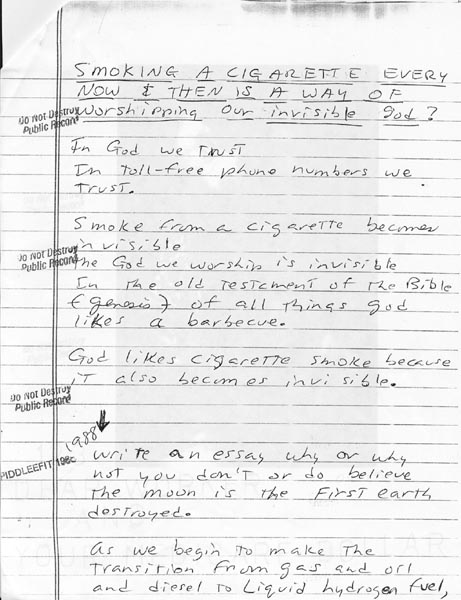 SMOKING A CIGARETTE EVERY
NOW & THEN IS A WAY OF
Worshipping Our invisible God?
Do Not Destroy
Public Record
In God we Trust
In Toll-free phone numbers we
Trust.
Smoke from a cigarette becomes
invisible
Do Not Destroy
Public Record
The God we worship is invisible
In the old testament of the Bible
(genesis) of all things god
likes a barbecue.
God likes cigarette smoke because
it also becomes invisible.
Do Not Destroy
Public Record
1988
PIDDLEEFIT 198c
write an essay why or why
not you don't or do believe
the moon is the First earth
destroyed.
As we begin to make the
Transition from gas and oil
and diesel to Liquid hydrogen fuel,